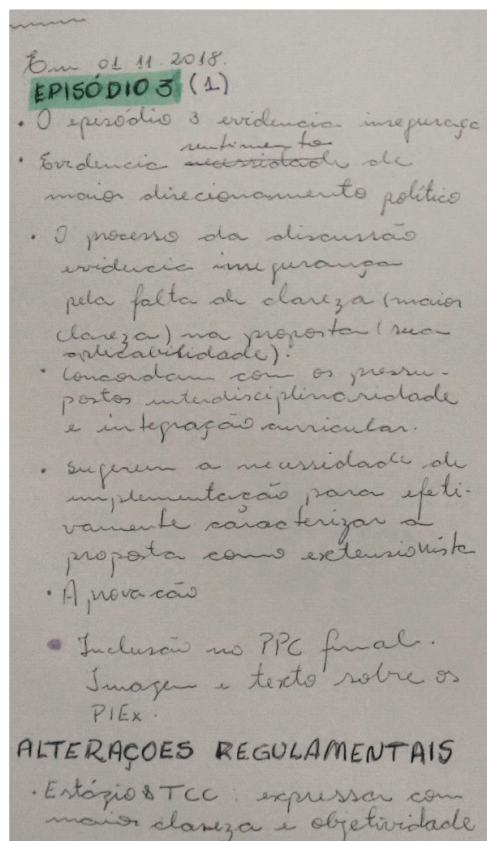 Em 01 11 2018.
EPISÓDIO 3 (1)
• O episódio 3 evidencia insegurança
sentimento
• Evidencia necessidade de
maior direcionamento político
• O processo da discussão
evidencia insegurança
pela falta de clareza (maior
clareza) na proposta (sua
aplicabilidade).
• Concordam com os pressu-
postos interdisciplinaridade
e integração curricular.
• Sugerem a necessidade de
implementação para efeti-
vamente caracterizar a
proposta como extensionista
• Aprovação
• Inclusão no PPC final.
Imagem e texto sobre os
PIEx.
ALTERAÇOES REGULAMENTAIS
• Estágio & TCC: expressar com
maior clareza e objetividade